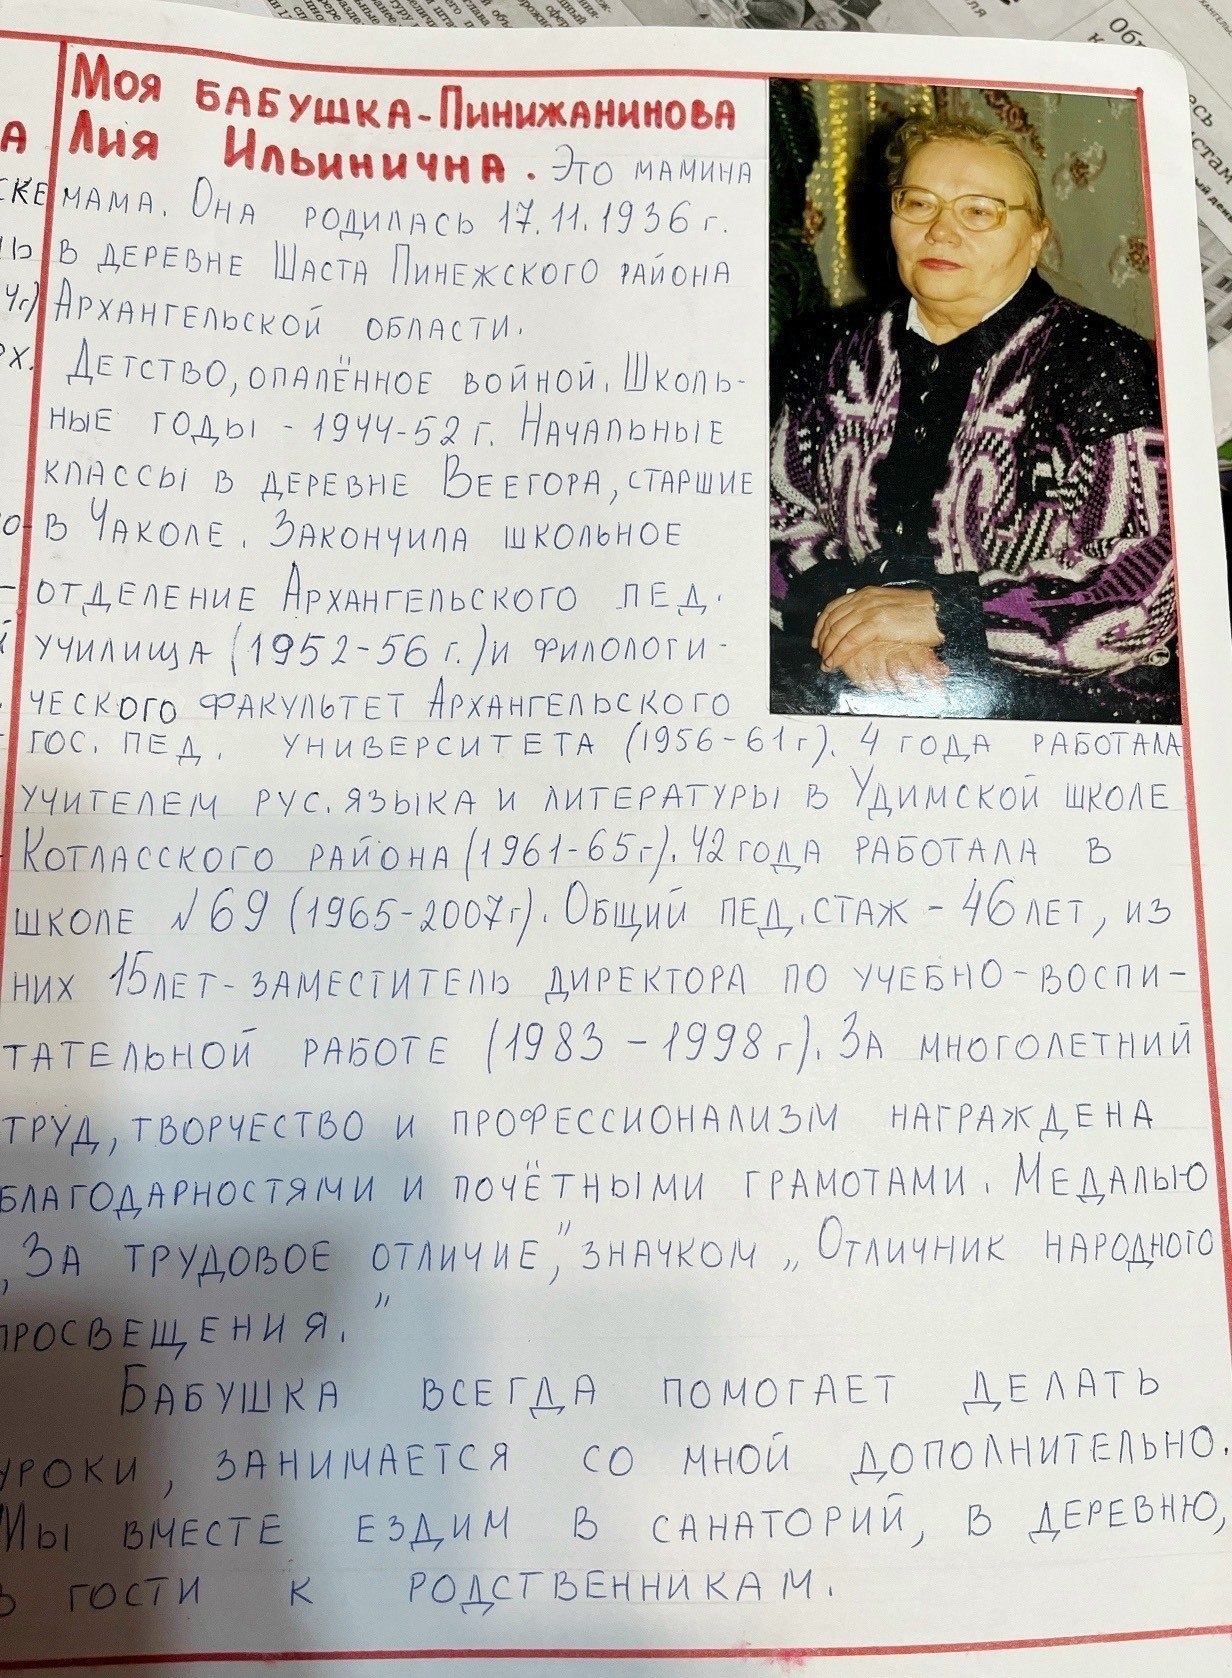 Моя БАБУШКА-ПИНИЖАНИНОВА
ЛИЯ ИЛЬИНИЧНА. ЭТО МАМИНА
МАМА. ОНА РОДИЛАСЬ 17.11.1936 г.
В ДЕРЕВНЕ ШАСТА ПИНЕЖСКОГО РАЙОНА
АРХАНГЕЛЬСКОЙ ОБЛАСТИ.
ДЕТСТВО, ОПАЛЁННОЕ ВОЙНОЙ. ШКОЛЬ-
НЫЕ ГОДЫ - 1944-52 г. НАЧАЛЬНЫЕ
КЛАССЫ В ДЕРЕВНЕ ВЕЕГОРА, СТАРШИЕ
В ЧАКОЛЕ. ЗАКОНЧИЛА ШКОЛЬНОЕ
ОТДЕЛЕНИЕ АРХАНГЕЛЬСКОГО ПЕД.
УЧИЛИЩА (1952-56 г.) И ФИЛОЛОГИ-
ЧЕСКОГО ФАКУЛЬТЕТ АРХАНГЕЛЬСКОГО
ГОС. ПЕД. УНИВЕРСИТЕТА (1956-61 г). 4 ГОДА РАБОТАЛА
УЧИТЕЛЕМ РУС. ЯЗЫКА И ЛИТЕРАТУРЫ В УДИМСКОЙ ШКОЛЕ
КОТЛАССКОГО РАЙОНА (1961-65 г). 42 ГОДА РАБОТАЛА В
ШКОЛЕ №69 (1965-2007 г). ОБЩИЙ ПЕД. СТАЖ - 46 ЛЕТ, ИЗ
НИХ 15 ЛЕТ - ЗАМЕСТИТЕЛЬ ДИРЕКТОРА ПО УЧЕБНО-ВОСПИ-
ТАТЕЛЬНОЙ РАБОТЕ (1983 - 1998 г). ЗА МНОГОЛЕТНИЙ
ТРУД, ТВОРЧЕСТВО И ПРОФЕССИОНАЛИЗМ НАГРАЖДЕНА
БЛАГОДАРНОСТЯМИ И ПОЧЁТНЫМИ ГРАМОТАМИ. МЕДАЛЬЮ
„ЗА ТРУДОВОЕ ОТЛИЧИЕ," ЗНАЧКОМ „ОТЛИЧНИК НАРОДНОГО
ПРОСВЕЩЕНИЯ."
БАБУШКА ВСЕГДА ПОМОГАЕТ ДЕЛАТЬ
УРОКИ, ЗАНИМАЕТСЯ СО МНОЙ ДОПОЛНИТЕЛЬНО.
МЫ ВМЕСТЕ ЕЗДИМ В САНАТОРИЙ, В ДЕРЕВНЮ,
В ГОСТИ К РОДСТВЕННИКАМ.